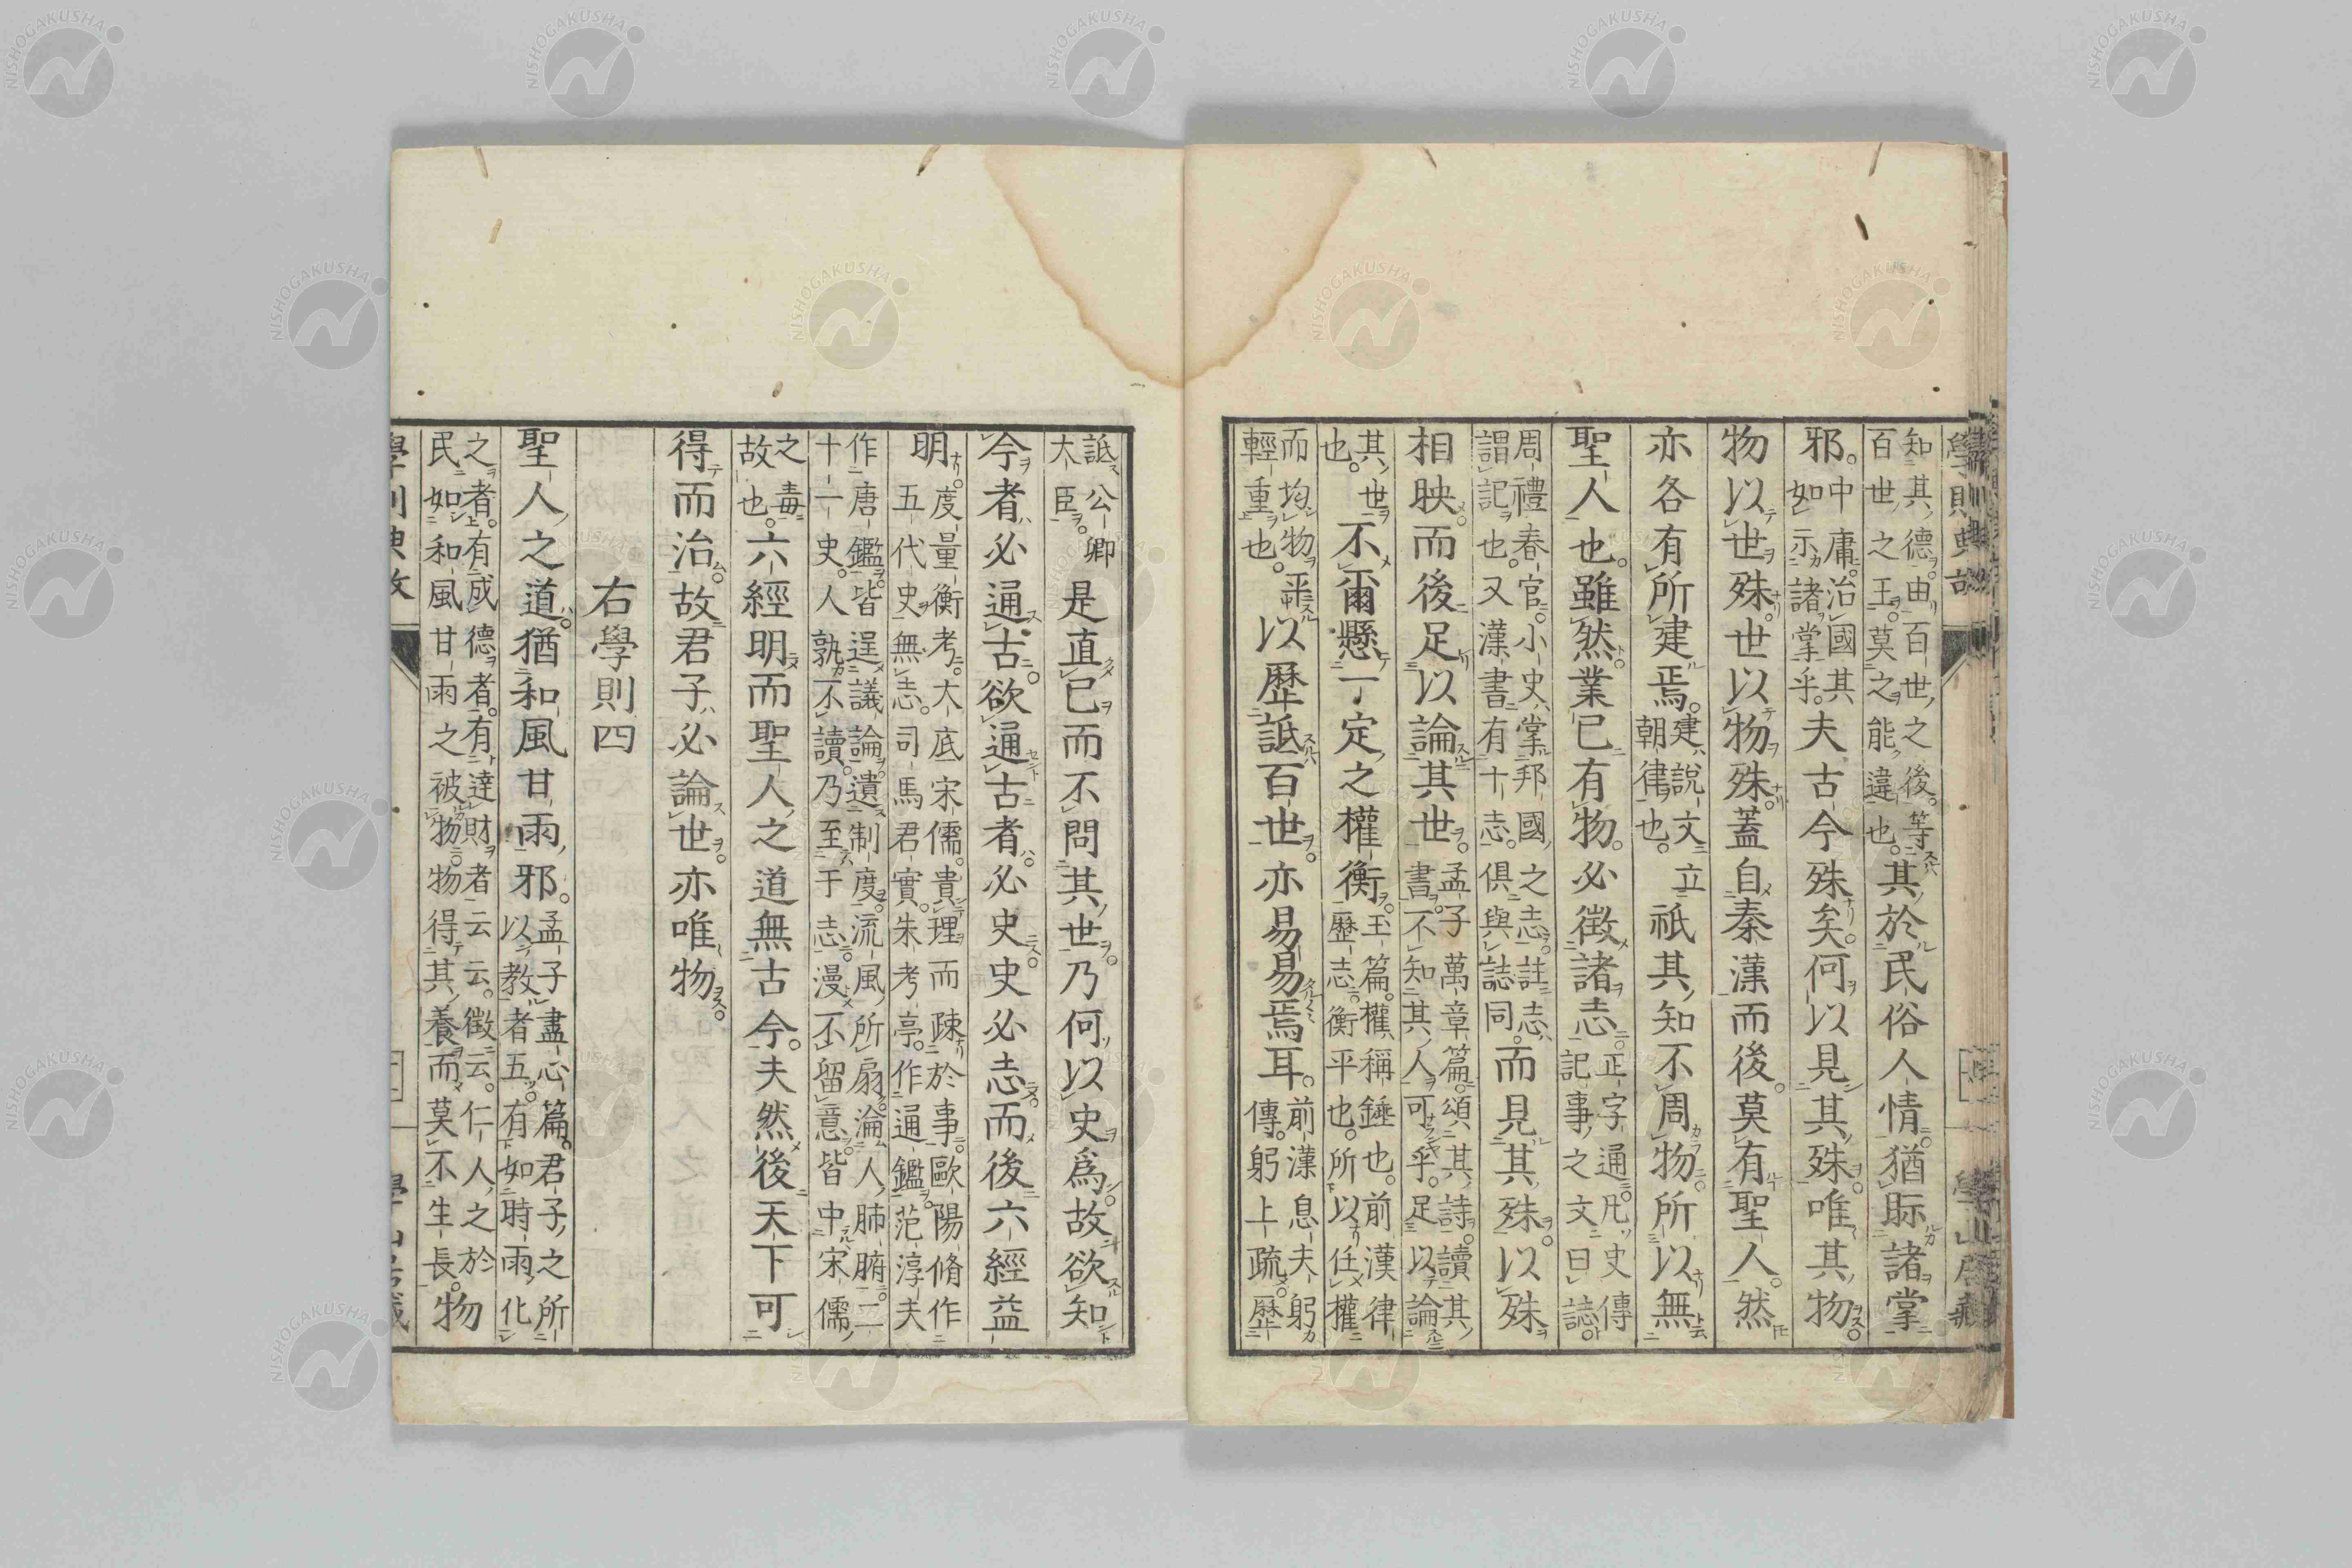 知其德。由百世之後。等
百世之王。莫之能違也。其於民俗人情。猶眎諸掌
邪。中庸。治國其
如示諸掌乎。夫古今殊矣。何以見其殊。唯其物。
物以世殊。世以物殊。蓋自秦漢而後。莫有聖人。然
亦各有所建焉。建說文立
朝律也。祇其知不周物。所以無
聖人也。雖然業已有物。必徵諸志。正字通。凡史傳
記事之文曰誌。
周禮春官。小史掌邦國之志。註志
謂記也。又漢書有十志。俱與誌同。而見其殊。以殊
相映。而後足以論其世。孟子萬章篇。頌其詩。讀其
書。不知其人可乎。足以論
其世
也。不爾懸一定之權衡。玉篇。權稱錘也。前漢律
歷志。衡平也。所以任權
而均物平
輕重也。以歷詆百世。亦易易焉耳。前漢息夫躬
傳。躬上疏。歷
詆公卿
大臣。是直己而不問其世。乃何以史爲。故欲知
今者必通古。欲通古者。必史。史必志。而後六經益
明。度量衡考。大底宋儒。貴理而疎於事。歐陽脩作
五代史無志。司馬君實。朱考亭。作通鑑。范淳夫
作唐鑑。皆逞議論。遺制度。流風所扇。淪人肺腑。二
十一史。人孰不讀。乃至于志。漫不留意。皆中宋儒
之毒
故也。六經明而聖人之道無古今。夫然後天下可
得而治。故君子必論世。亦唯物。
右學則四
聖人之道。猶和風甘雨邪。孟子盡心篇。君子之所
以教者五。有如時雨化
之者。有成德者。有達財者云云。徵云。仁人之於
民。如和風甘雨之被物。物得其養而莫不生長。物